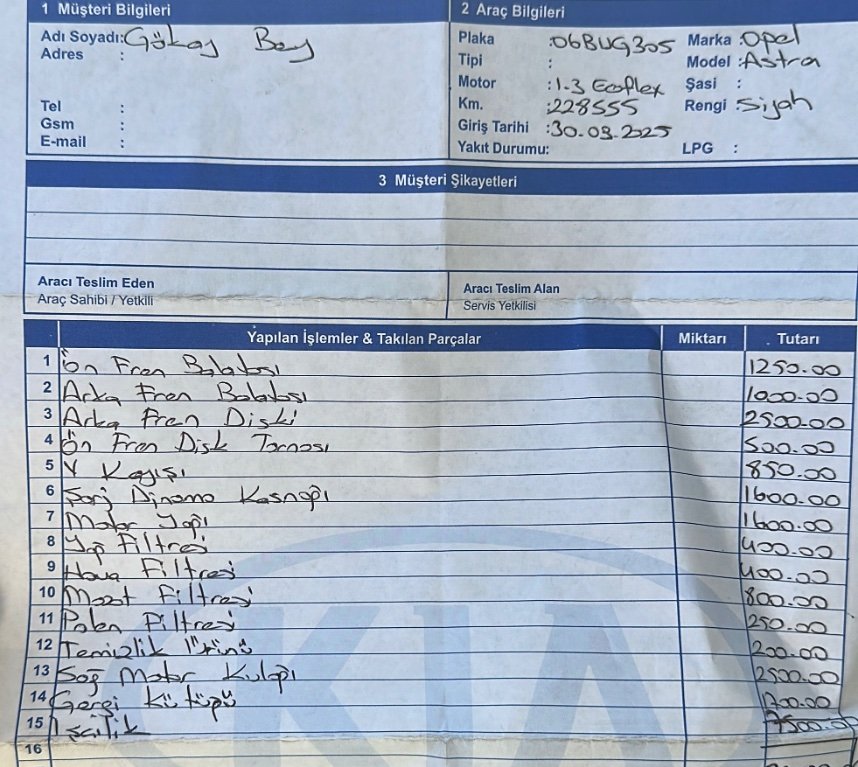 1 Müşteri Bilgileri
2 Araç Bilgileri
Adı Soyadı: Gökay Bey
Adres :
Tel :
Gsm :
E-mail :
Plaka : 06BUG305 Marka : Opel
Tipi : Model : Astra
Motor : 1.3 Ecoflex Şasi :
Km. : 228555 Rengi : Siyah
Giriş Tarihi : 30.09.2025
Yakıt Durumu: LPG :
3 Müşteri Şikayetleri
Aracı Teslim Eden
Araç Sahibi / Yetkili
Aracı Teslim Alan
Servis Yetkilisi
Yapılan İşlemler & Takılan Parçalar Miktarı Tutarı
1 Ön Fren Balatası 1250.00
2 Arka Fren Balatası 1000.00
3 Arka Fren Diski 2500.00
4 Ön Fren Disk Tornası 500.00
5 V Kayışı 850.00
6 Şarj Dinamo Kasnağı 1600.00
7 Motor Yağı 1600.00
8 Yağ Filtresi 400.00
9 Hava Filtresi 400.00
10 Mazot Filtresi 800.00
11 Polen Filtresi 250.00
12 Temizlik Ürünü 200.00
13 Sağ Motor Kulağı 2500.00
14 Gergi Kütüğü 1700.00
15 İşçilik 7500.00
16
KIA